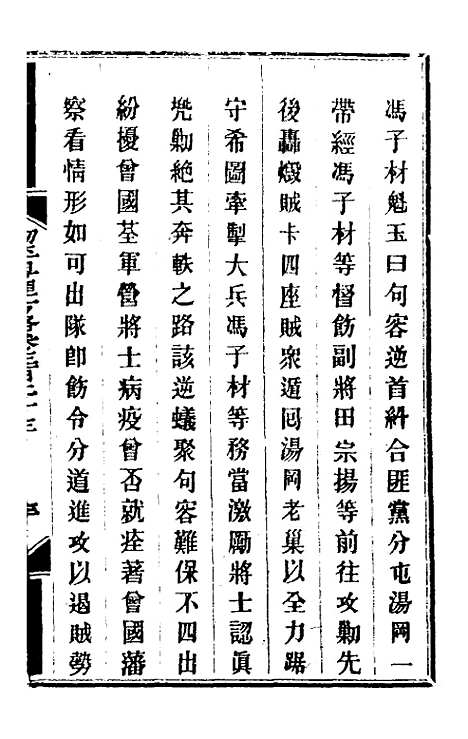 馮子材魁玉曰句容逆首糾合匪黨分屯湯岡一
帶經馮子材等督飭副將田宗揚等前往攻勦先
後轟燬賊卡四座賊衆遁囘湯岡老巢以全力踞
守希圖牽掣大兵馮子材等務當激勵將士認眞
兜勦絕其奔軼之路該逆蟻聚句容難保不四出
紛擾曾國荃軍營將士病疫曾否就痊著曾國藩
察看情形如可出隊卽飭令分道進攻以遏賊勢